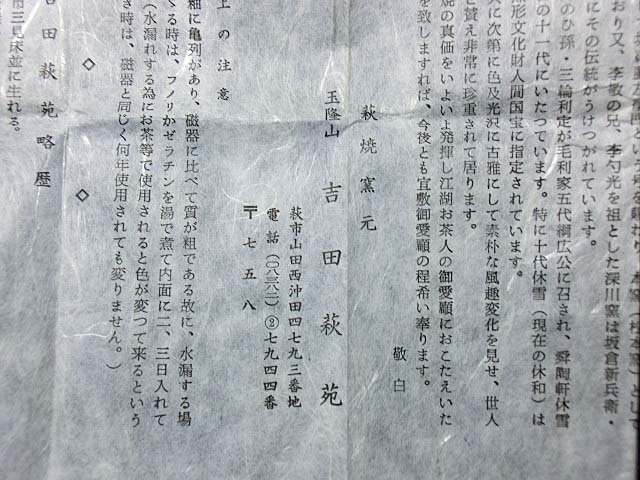 おり又、李敬の兄、李勺光を祖とした深川窯は坂倉新兵衛・
にその伝統がうけつがれています。
のひ孫・三輪利定が毛利家五代綱広公に召され、舜陶軒休雪
の十一代にいたつています。特に十代休雪（現在の休和）は
形文化財人間国宝に指定されています。
に次第に色及光沢に古雅にして素朴な風趣変化を見せ、世人
と賛え非常に珍重されて居ります。
焼の真価をいよいよ発揮し江湖お茶人の御愛顧におこたえいた
を致しますれば、今後とも宜敷御愛顧の程希い奉ります。
敬白
萩焼窯元
玉隆山 吉田萩苑
萩市山田西沖田四七九三番地
電話（〇八三八二）②七九四四番
〒七五八
上の注意
釉に亀列があり、磁器に比べて質が粗である故に、水漏する場
くる時は、フノリかゼラチンを湯で煮て内面に二、三日入れて
（水漏れする為にお茶等で使用されると色が変つて来るという
き時は、磁器と同じく何年使用されても変りません。）
◇ ◇
吉田萩苑略歴
市三見床並に生れる。